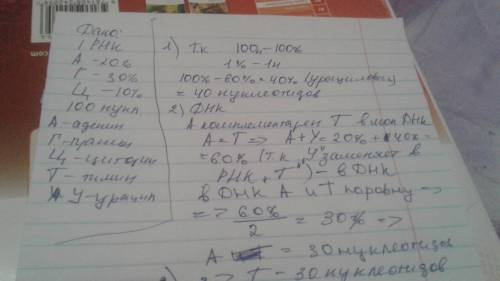 Дано:
1 РНК
А - 20%
Г - 30%
Ц - 10%
100 нукл.
А - аденин
Г - гуанин
Ц - цитозин
Т - тимин
У - урацил
1) Т.к 100н - 100%
1% - 1н
100% - 60% = 40% (урациловых)
= 40 нуклеотидов
2) ДНК
А комплементарен Т в мол ДНК
А = Т => А + У = 20% + 40% =
= 60% (т.к „У" заменяет в
РНК „Т") - в ДНК
в ДНК А и Т поровну =>
=> 60% / 2 = 30% =>
А = 30 нуклеотидов
=> Т - 30 нуклеотидов